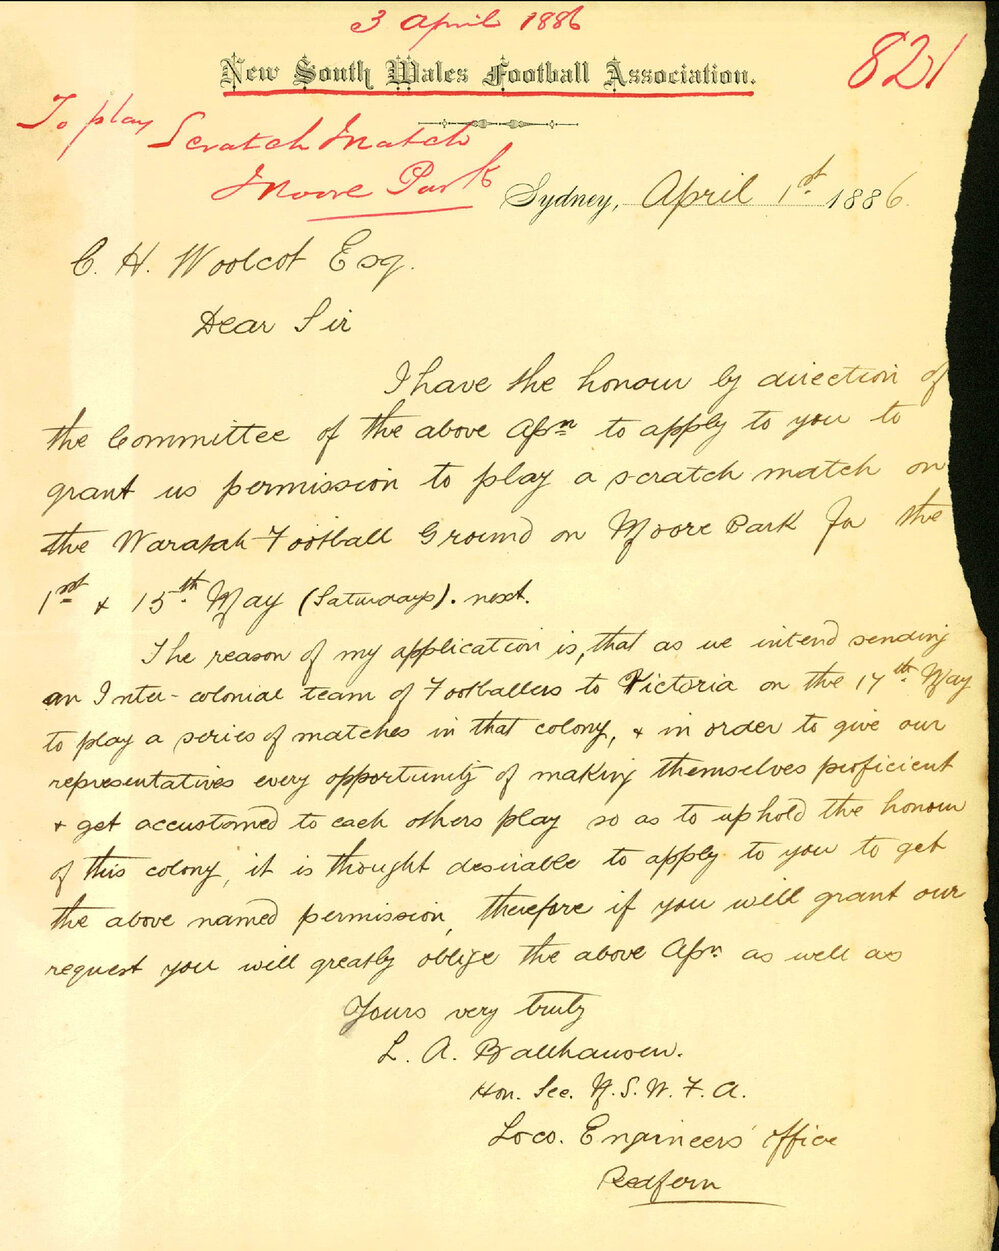 3 April 1886
821
New South Wales Football Association.
To play
Scratch Match
Moore Park
Sydney, April 1st 1886
C. H. Woolcot Esq.
Dear Sir
I have the honour by direction of
the Committee of the above Assn to apply to you to
grant us permission to play a scratch match on
the Waratah Football Ground on Moore Park for the
1st & 15th May (Saturdays). next.
The reason of my application is, that as we intend sending
an Inter-colonial team of Footballers to Victoria on the 17th May
to play a series of matches in that colony, & in order to give our
representatives every opportunity of making themselves proficient
& get accustomed to each others play so as to uphold the honour
of this colony, it is thought desirable to apply to you to get
the above named permission, therefore if you will grant our
request you will greatly oblige the above Assn as well as
Yours very truly
L. A. Ballhausen.
Hon. Sec. N.S.W.F.A.
Loco. Engineers' Office
Redfern